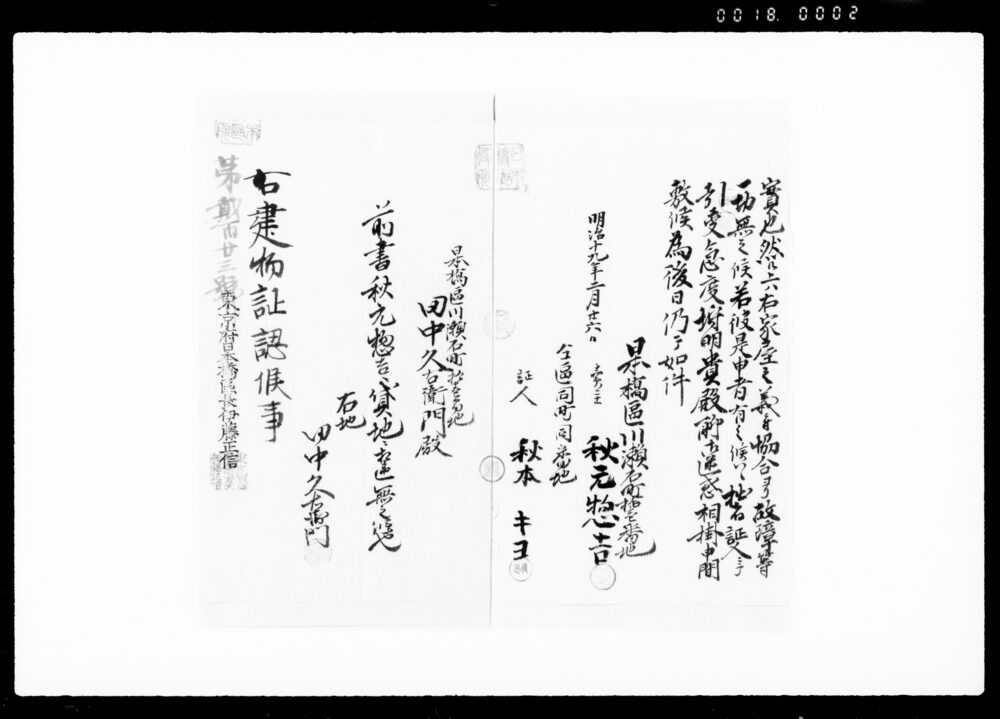 0018. 0002
實也然ル上ハ右家屋之義ニ付協合ヨリ故障等
一切無之候若彼是申者有之候ハヽ拙者証人ニ
引受急度埒明貴殿前御迷惑相掛申間
敷候為後日仍テ如件
明治十九年二月廿六日
日本橋區川瀬石町拾壱番地
賣主 秋元惣吉
仝區同町同番地
証人 秋本キヨ
日本橋區川瀬石町拾壱番地
田中久右衛門殿
前書秋元惣吉ヘ貸地ニ相違無之候也
右地
田中久右衛門
右建物証認候事
第貳百廿三號
東京府日本橋區長伊藤正信